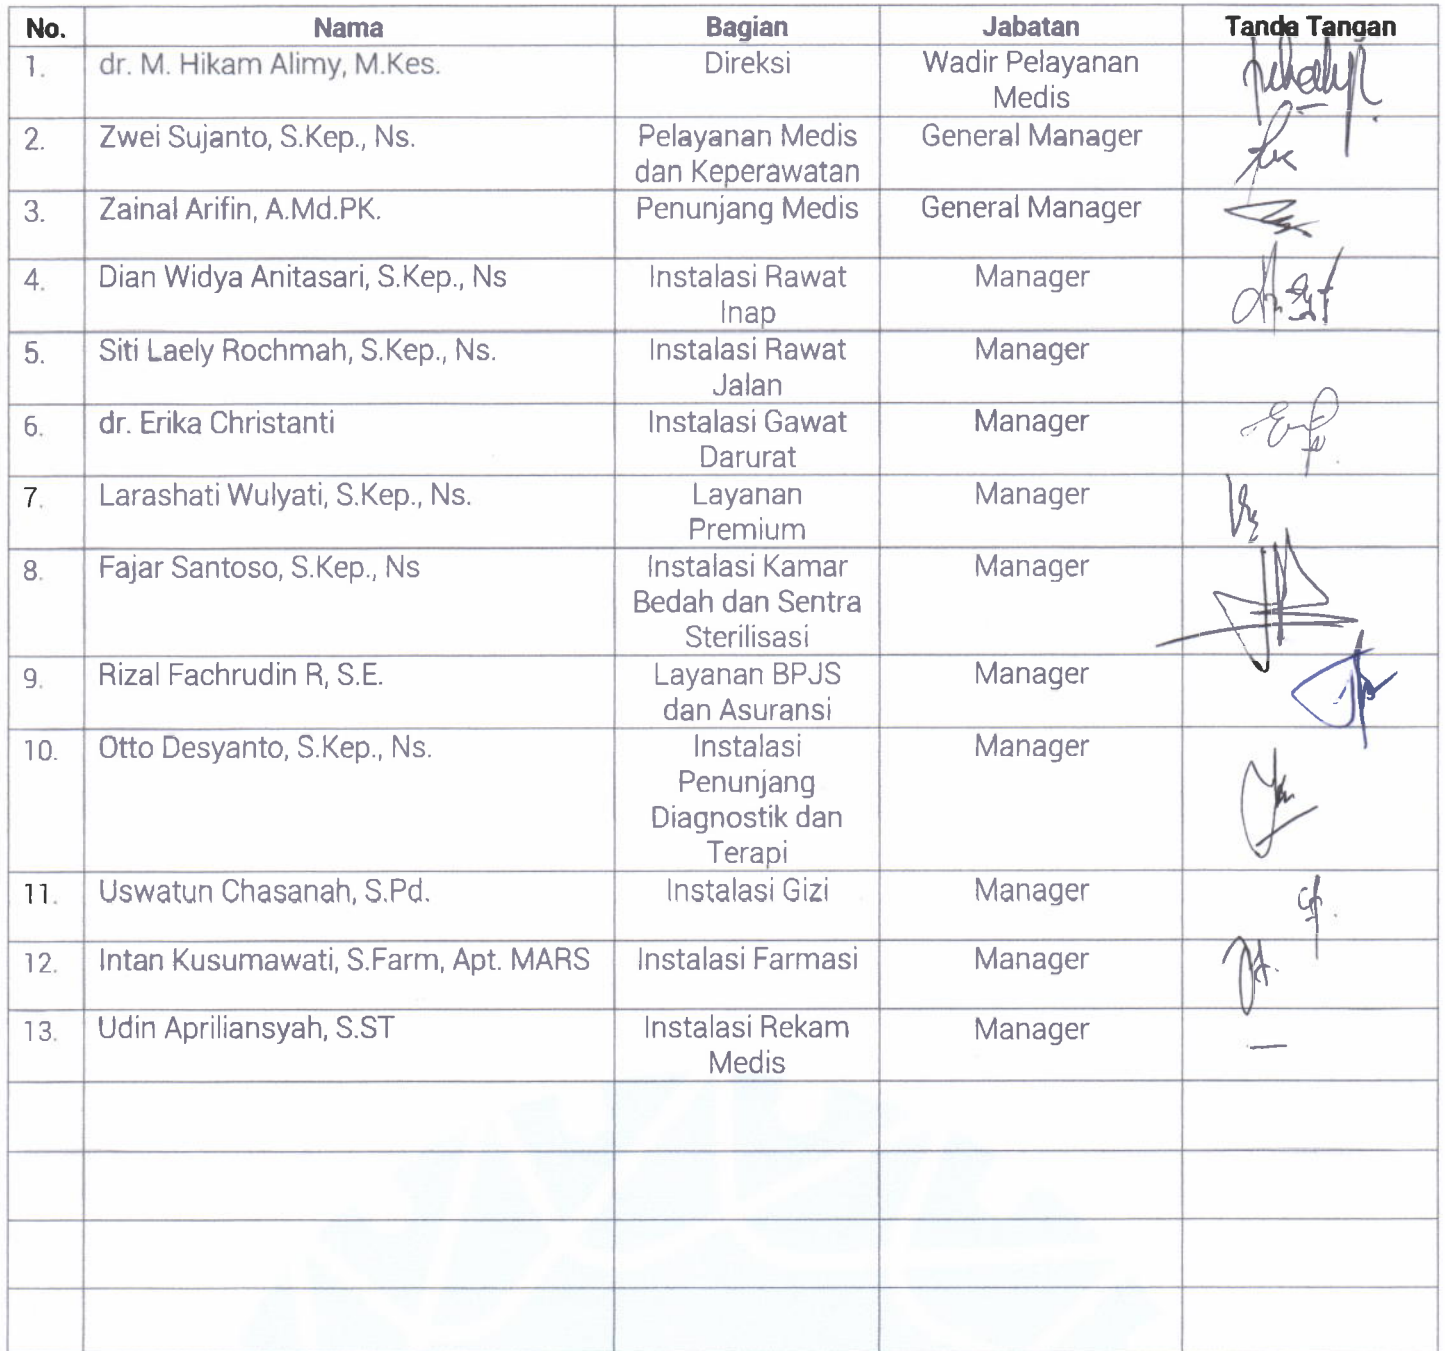 No. Nama Bagian Jabatan Tanda Tangan
1. dr. M. Hikam Alimy, M.Kes. Direksi Wadir Pelayanan
Medis
2. Zwei Sujanto, S.Kep., Ns. Pelayanan Medis General Manager
dan Keperawatan
3. Zainal Arifin, A.Md.PK. Penunjang Medis General Manager
4. Dian Widya Anitasari, S.Kep., Ns Instalasi Rawat Manager
Inap
5. Siti Laely Rochmah, S.Kep., Ns. Instalasi Rawat Manager
Jalan
6. dr. Erika Christanti Instalasi Gawat Manager
Darurat
7. Larashati Wulyati, S.Kep., Ns. Layanan Manager
Premium
8. Fajar Santoso, S.Kep., Ns Instalasi Kamar Manager
Bedah dan Sentra
Sterilisasi
9. Rizal Fachrudin R, S.E. Layanan BPJS Manager
dan Asuransi
10. Otto Desyanto, S.Kep., Ns. Instalasi Manager
Penunjang
Diagnostik dan
Terapi
11. Uswatun Chasanah, S.Pd. Instalasi Gizi Manager
12. Intan Kusumawati, S.Farm, Apt. MARS Instalasi Farmasi Manager
13. Udin Apriliansyah, S.ST Instalasi Rekam Manager —
Medis